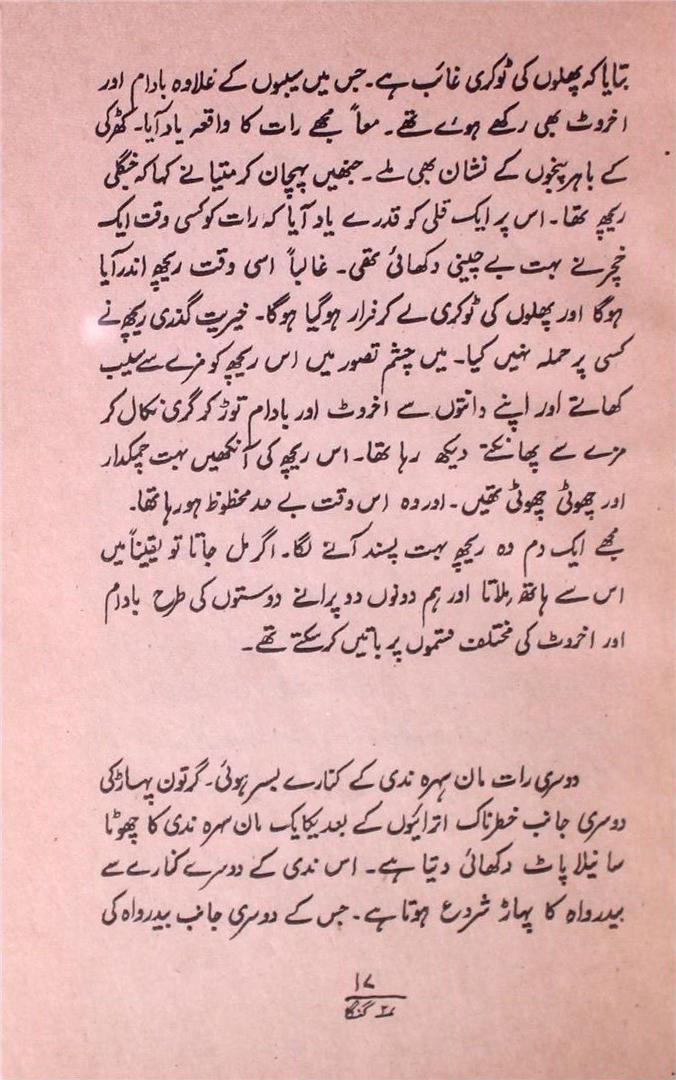 بتایا کہ پھلوں کی ٹوکری غائب ہے۔ جس میں سیبوں کے علاوہ بادام اور
اخروٹ بھی رکھے ہوئے تھے۔ معاً مجھے رات کا واقعہ یاد آیا۔ کھڑکی
کے باہر پنجوں کے نشان بھی ملے۔ جنھیں پہچان کر متیا نے کہا کہ جنگلی
ریچھ تھا۔ اس پر ایک قلی کو قدرے یاد آیا کہ رات کو کسی وقت ایک
خچر نے بہت بے چینی دکھائی تھی۔ غالباً اسی وقت ریچھ اندر آیا
ہوگا اور پھلوں کی ٹوکری لے کر فرار ہو گیا ہوگا۔ خیریت گذری ریچھ نے
کسی پر حملہ نہیں کیا۔ میں چشم تصور میں اس ریچھ کو مزے سے سیب
کھاتے اور اپنے دانتوں سے اخروٹ اور بادام توڑ کر گری نکال کر
مزے سے پھانکتے دیکھ رہا تھا۔ اس ریچھ کی آنکھیں بہت چمکدار
اور چھوٹی چھوٹی تھیں۔ اور وہ اس وقت بے حد محظوظ ہو رہا تھا۔
مجھے ایک دم وہ ریچھ بہت پسند آنے لگا۔ اگر مل جاتا تو یقیناً میں
اس سے ہاتھ ملاتا اور ہم دونوں دو پرانے دوستوں کی طرح بادام
اور اخروٹ کی مختلف قسموں پر باتیں کر سکتے تھے۔
دوسری رات مان سہرہ ندی کے کنارے بسر ہوئی۔ گرتون پہاڑ کی
دوسری جانب خطرناک اترائیوں کے بعد یکایک مان سہرہ ندی کا چھوٹا
سا نیلا پاٹ دکھائی دیتا ہے۔ اس ندی کے دوسرے کنارے سے
بیدرواہ کا پہاڑ شروع ہوتا ہے۔ جس کے دوسری جانب بیدرواہ کی
۱۷